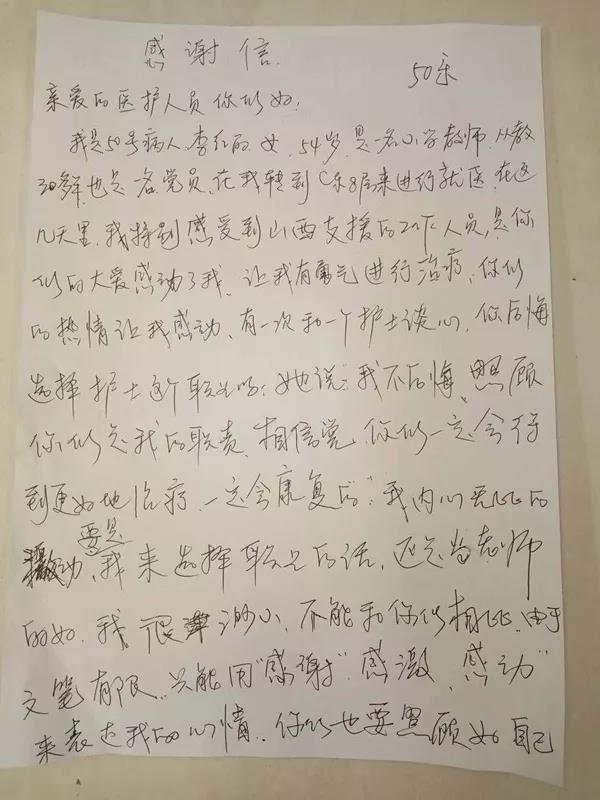 感谢信
50床
亲爱的医护人员你们好:
我是50号病人李红丽,女,54岁,是一名小学教师,从教
30多年,也是一名党员,在我转到C东8层来进行就医,在这
几天里,我特别感受到山西支援的工作人员,是你
们的大爱感动了我、让我有勇气进行治疗,你们
的热情让我感动、有一次和一个护士谈心,你后悔
选择护士这个职业吗:她说:我不后悔,照顾
你们是我的职责、相信党,你们一定会得
到更好地治疗,一定会康复的",我内心无比的
激动、要是我来选择职业的话,还是当老师
的好,我很渺小、不能和你们相比,由于
文笔有限、只能用"感谢"、感激、感动"
来表达我的心情、你们也要照顾好自己